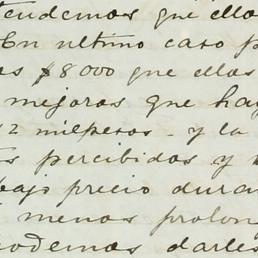 tendemos que ellas
En ultimo caso p
as $8000 que ellas
mejoras que hay
12 milpesos - y la
s percibidas y
bajo precio dura
menos prolon
podemos darles